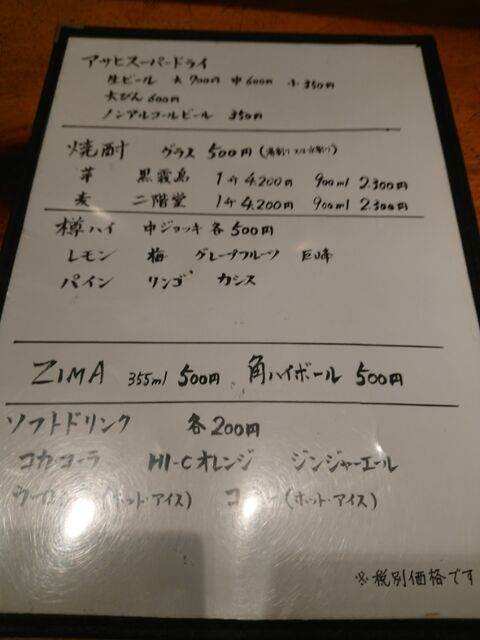 アサヒスーパードライ
生ビール 大 900円 中 600円 小 350円
大びん 600円
ノンアルコールビール 350円
焼酎 グラス 500円 (湯割り又は水割り)
芋 黒霧島 1升 4.200円 900ml 2.300円
麦 二階堂 1升 4.200円 900ml 2.300円
樽ハイ 中ジョッキ 各500円
レモン 梅 グレープフルーツ 巨峰
パイン リンゴ カシス
ZIMA 355ml 500円 角ハイボール 500円
ソフトドリンク 各200円
コカコーラ HI-Cオレンジ ジンジャーエール
(ホット・アイス) (ホット・アイス)
※税別価格です